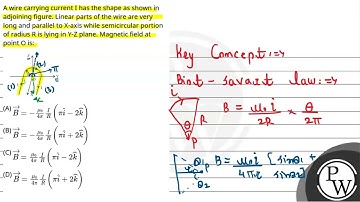 A wire carrying current I has the shape as shown in
adjoining figure. Linear parts of the wire are very
long and parallel to X-axis while semicircular portion
of radius R is lying in Y-Z plane. Magnetic field at
point O is:
(A) \vec{B} = \frac{μ₀}{4π} \frac{I}{R} (π\hat{i} − 2\hat{k})
(B) \vec{B} = −\frac{μ₀}{4π} \frac{I}{R} (π\hat{i} + 2\hat{k})
(C) \vec{B} = −\frac{μ₀}{4π} \frac{I}{R} (π\hat{i} − 2\hat{k})
(D) \vec{B} = \frac{μ₀}{4π} \frac{I}{R} (π\hat{i} + 2\hat{k})
Key Concept :⇒
Biot - savart law :⇒
i
R
θ
P
B = \frac{μ₀ i}{2R} × \frac{θ}{2π}
θ₁
θ₂
P
B = \frac{μ₀ i}{4πr} [ sinθ₁ +
sinθ₂ ]
P
W